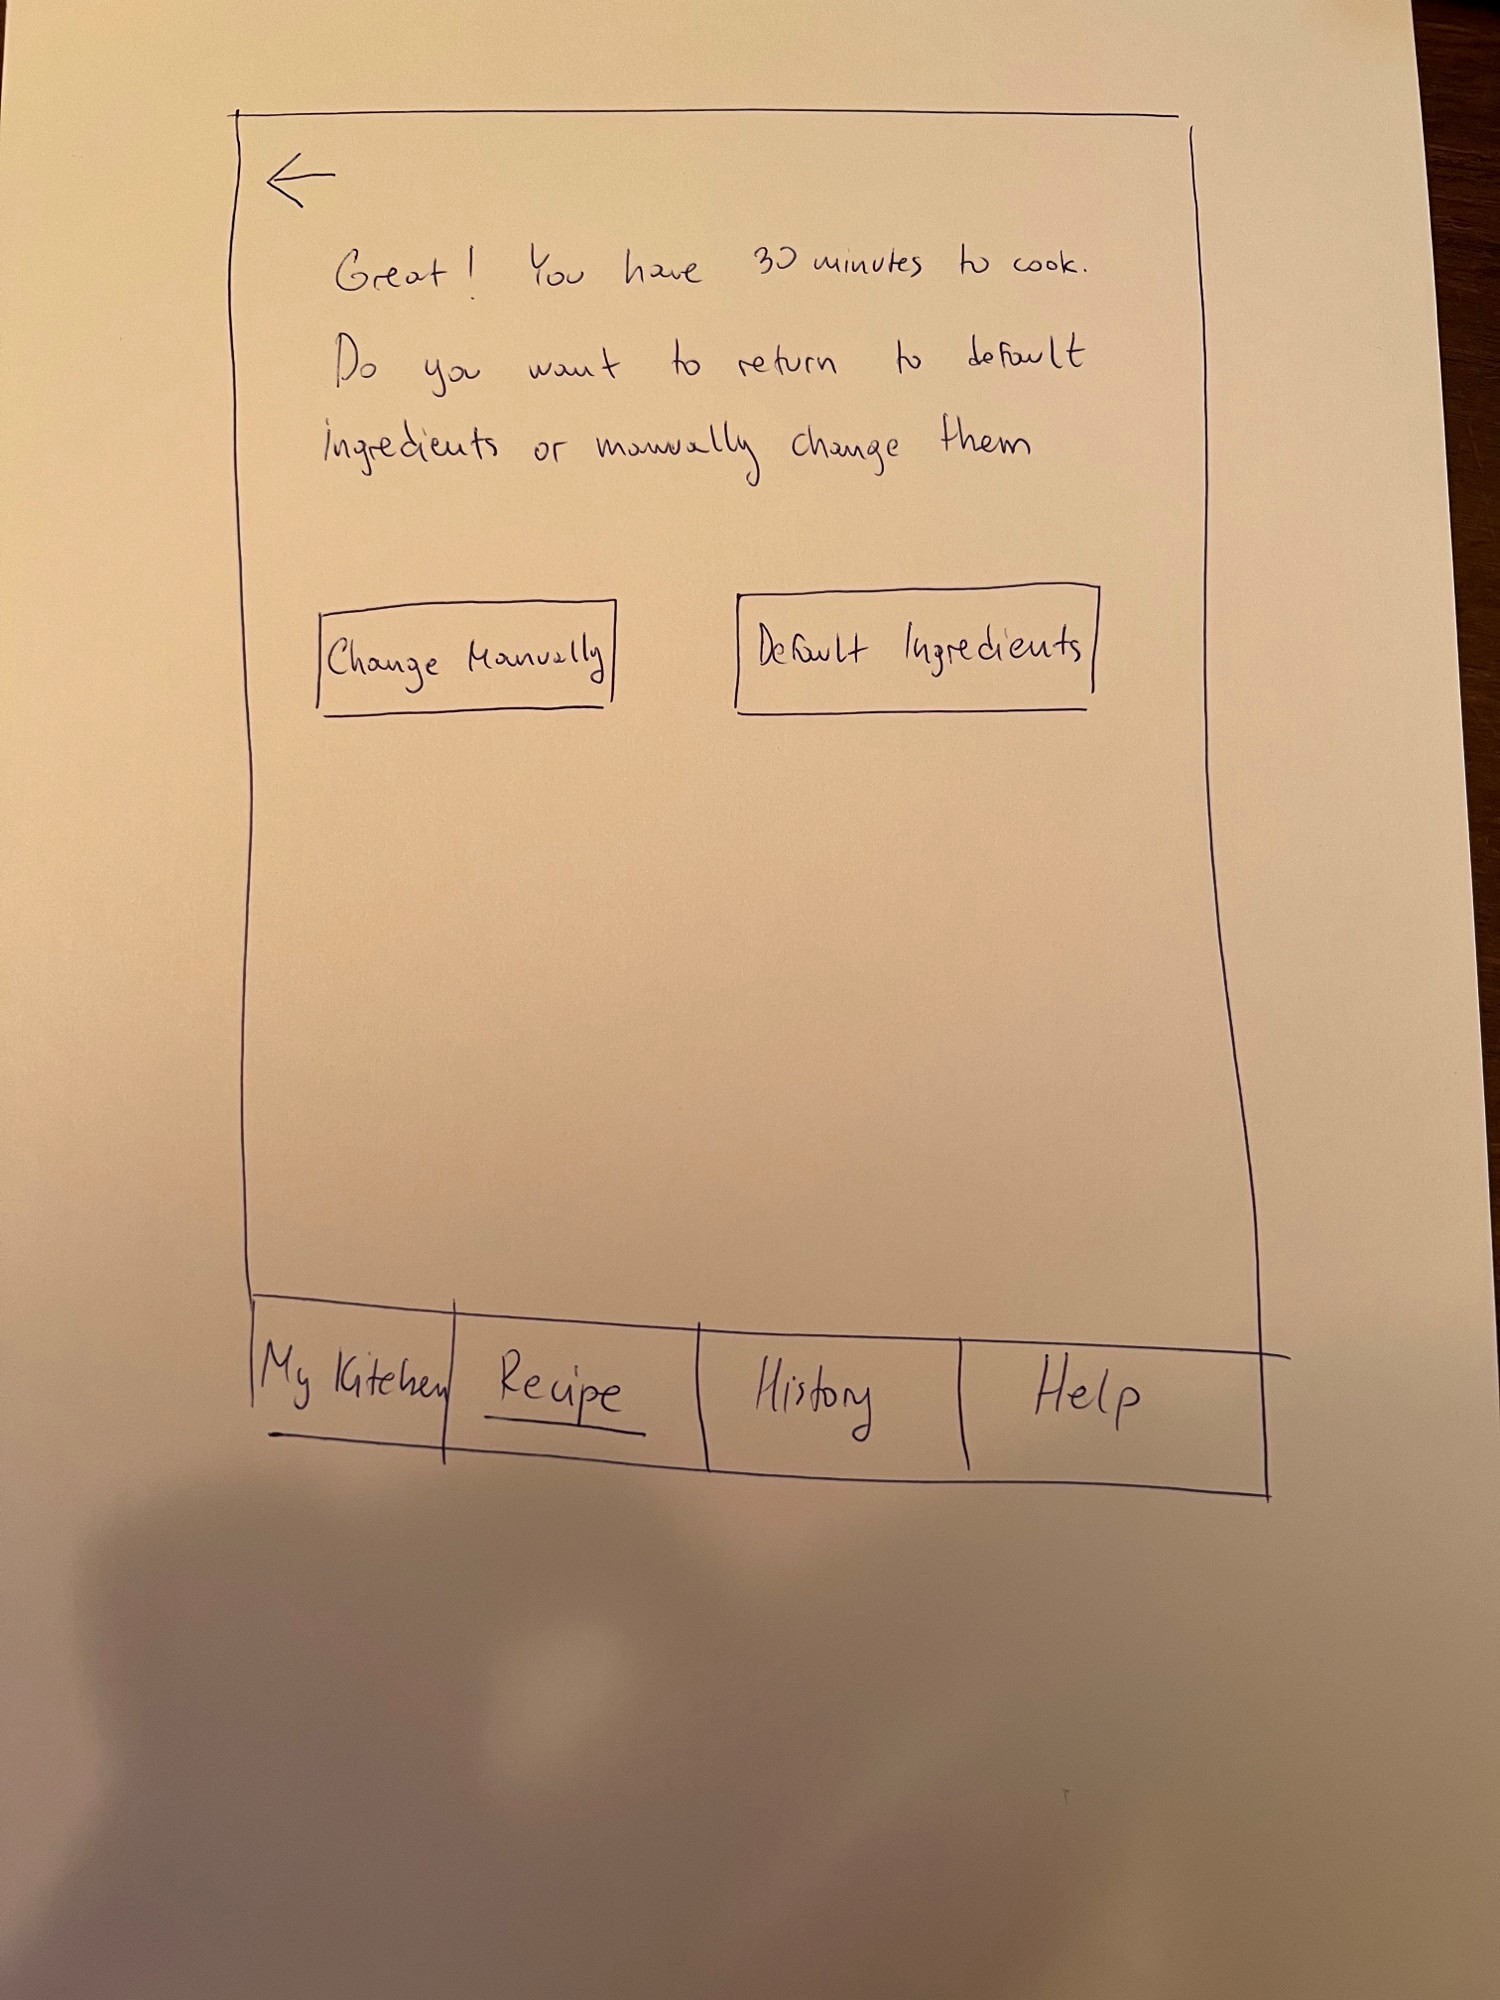 Great! You have 30 minutes to cook.
Do you want to return to default
ingredients or manually change them
Change Manually
Default Ingredients
My Kitchen
Recipe
History
Help